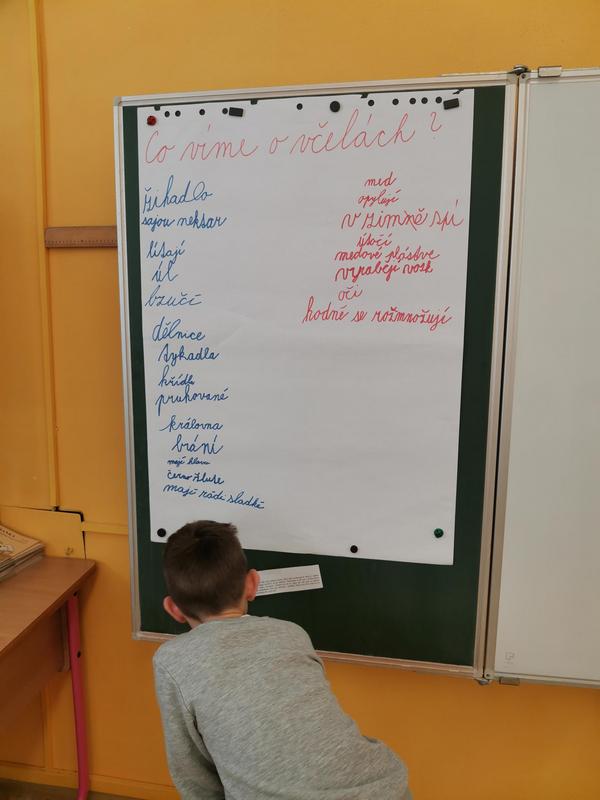 Co víme o včelách ?
žihadlo
sajou nektar
lítají
úl
bzučí
dělnice
tykadla
křídla
pruhované
královna
brání
mají hlavu
černo žluté
mají rádi sladké
med
opylují
v zimně spí
útočí
medové plástve
vyrabějí vosk
oči
hodně se rozmnožují